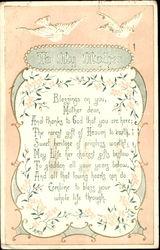 To My Mother
Blessings on you,
Mother dear,
And thanks to God that you are here;
The rarest gift of Heaven to earth,
Sweet heritage of priceless worth!
May Life her choicest gifts bestow
To gladden all your years below,
And all that loving hearts can do
Combine to bless your
whole life through.